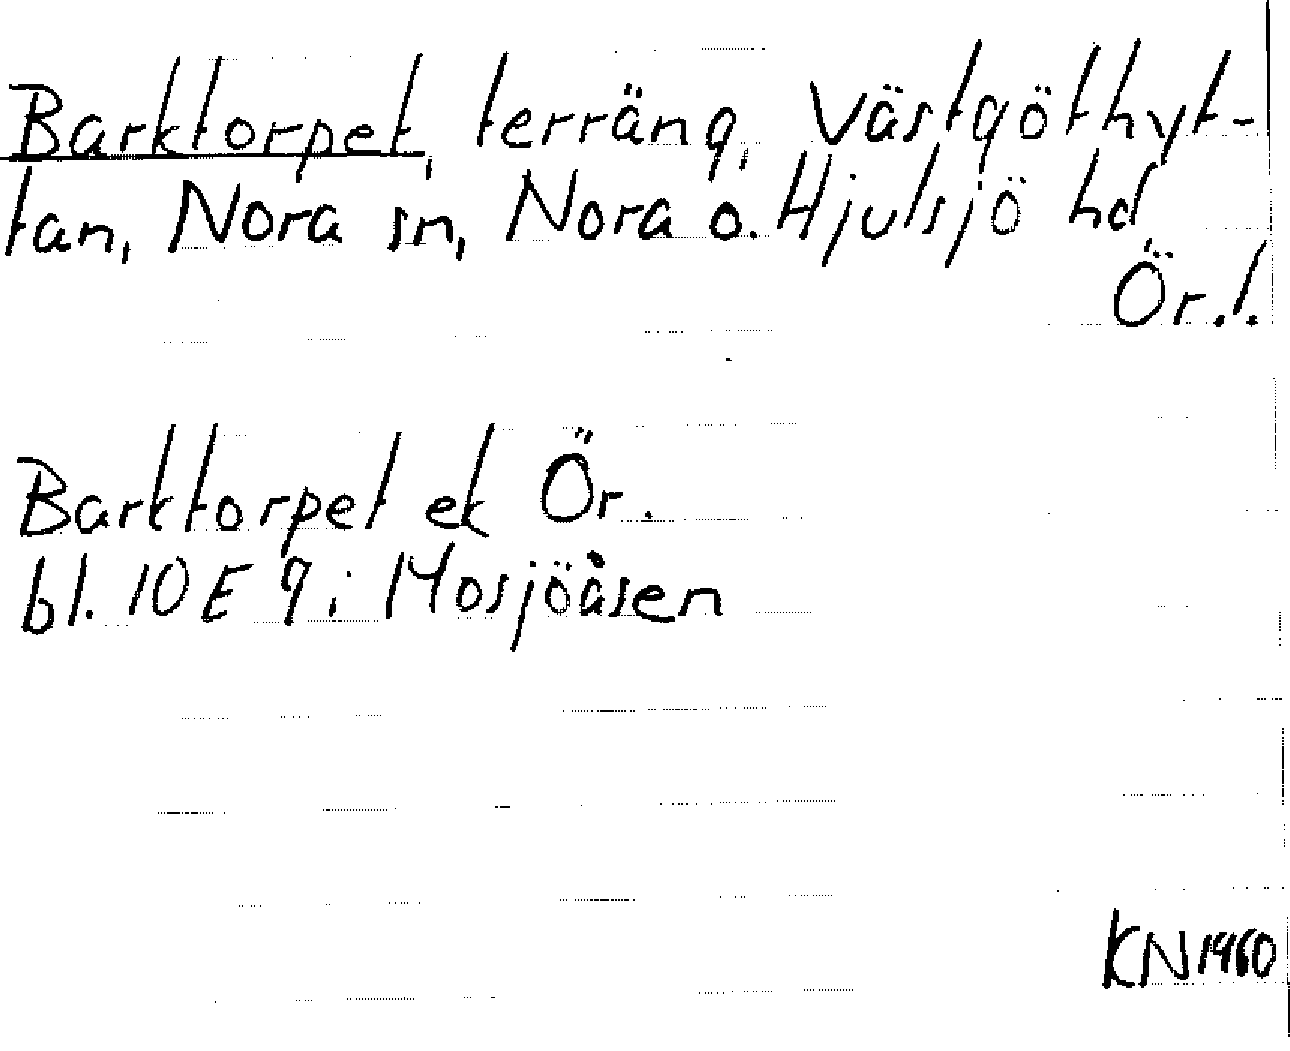 Barktorpet, terräng, Västgöthyt-
tan, Nora sn, Nora o. Hjulsjö hd
Ör.l.
Barktorpet ek Ör.
bl. 10 E 9 i Mosjöåsen
KN 1960